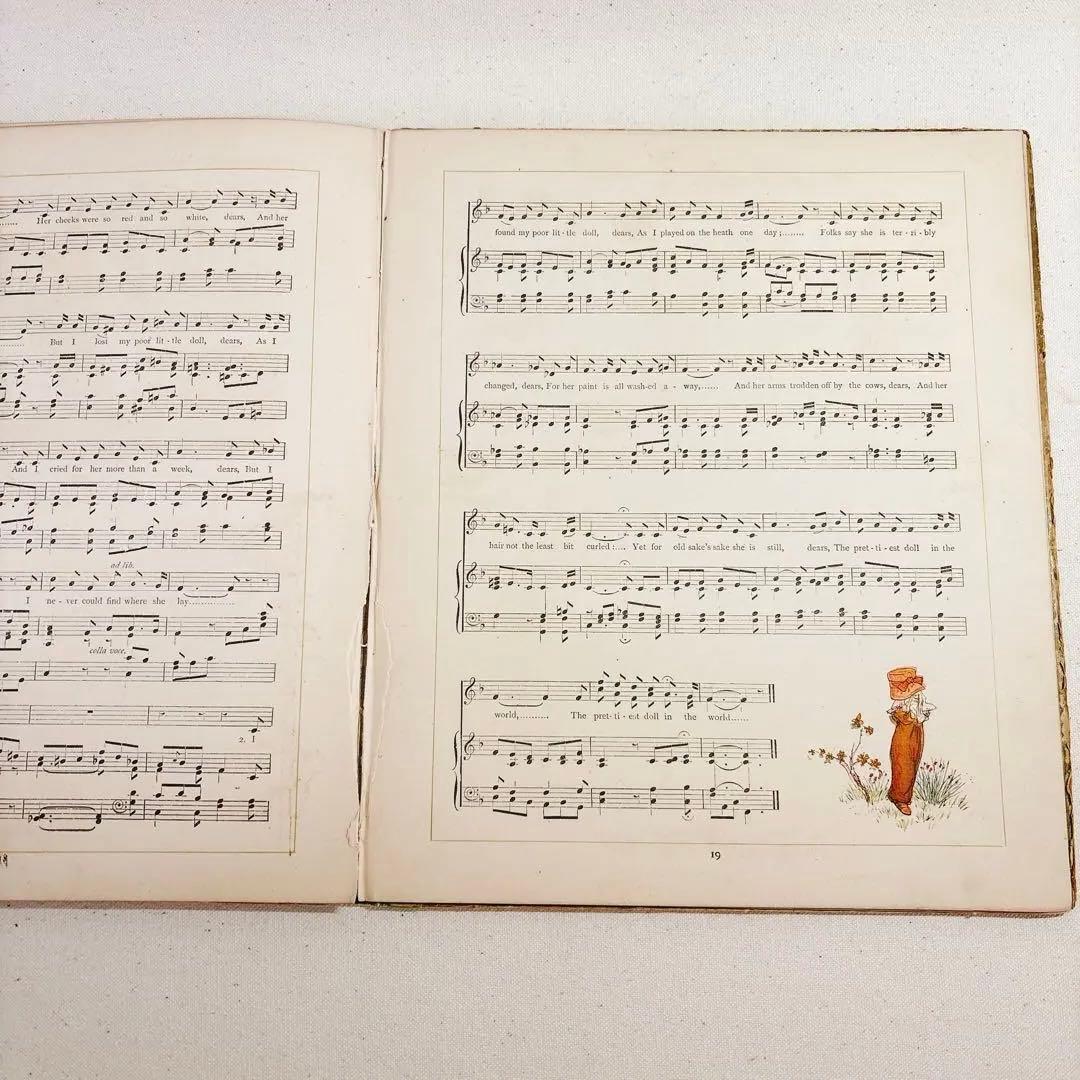 Her cheeks were so red and so white, dears, And her
But I lost my poor lit-tle doll, dears, As I
And I cried for her more than a week, dears, But I
ad lib.
I ne-ver could find where she lay..............
colla voce.
2. I
found my poor lit-tle doll, dears, As I played on the heath one day;....... Folks say she is ter-ri-bly
changed, dears, For her paint is all wash-ed a-way,...... And her arms trodden off by the cows, dears, And her
hair not the least bit curled:.... Yet for old sake's sake she is still, dears, The pret-ti-est doll in the
world,.......... The pret-ti-est doll in the world......
19